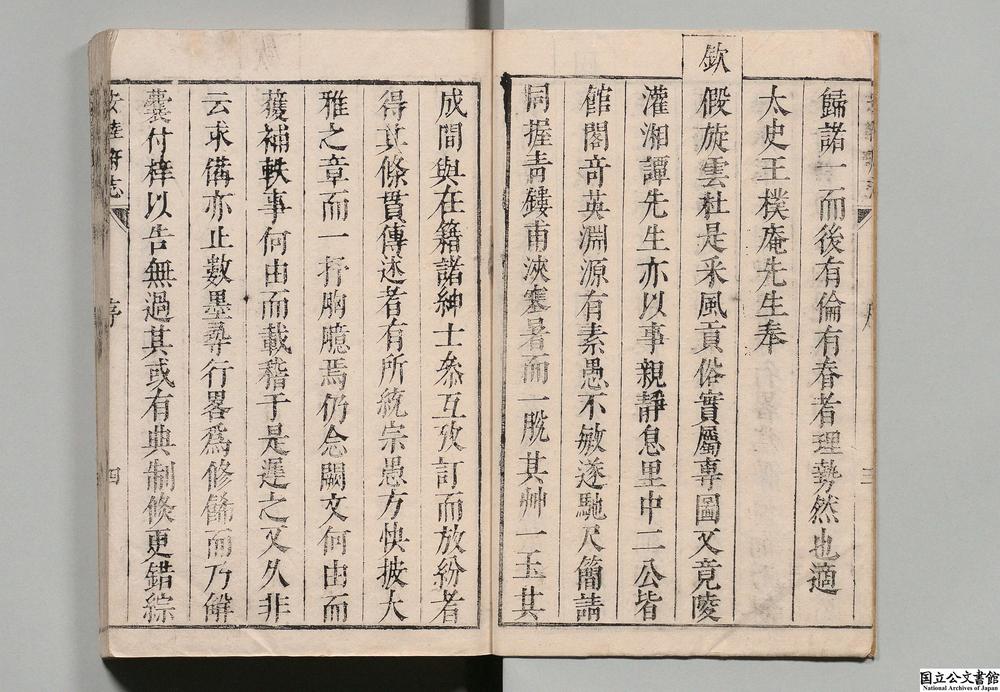 歸諸一而後有倫有脊者理勢然也適
太史王樸庵先生奉
欽
假旋雲杜是采風貢俗實屬專圖又竟陵
灌湘譚先生亦以事親靜息里中二公皆
館閣奇英淵源有素愚不敏遂馳尺簡請
同握靑鏤甫浹寒暑而一脫其艸一玉其
成間與在籍諸紳士叅互攷訂而放紛者
得其條貫傳述者有所統宗愚方快披大
雅之章而一抒胸臆焉仍念闕文何由而
獲補軼事何由而載稽于是遲之又久非
云求備亦止數墨尋行畧爲修餙而乃觧
囊付梓以告無過其或有典制倏更錯綜
安陸府志
序
四
国立公文書館
National Archives of Japan